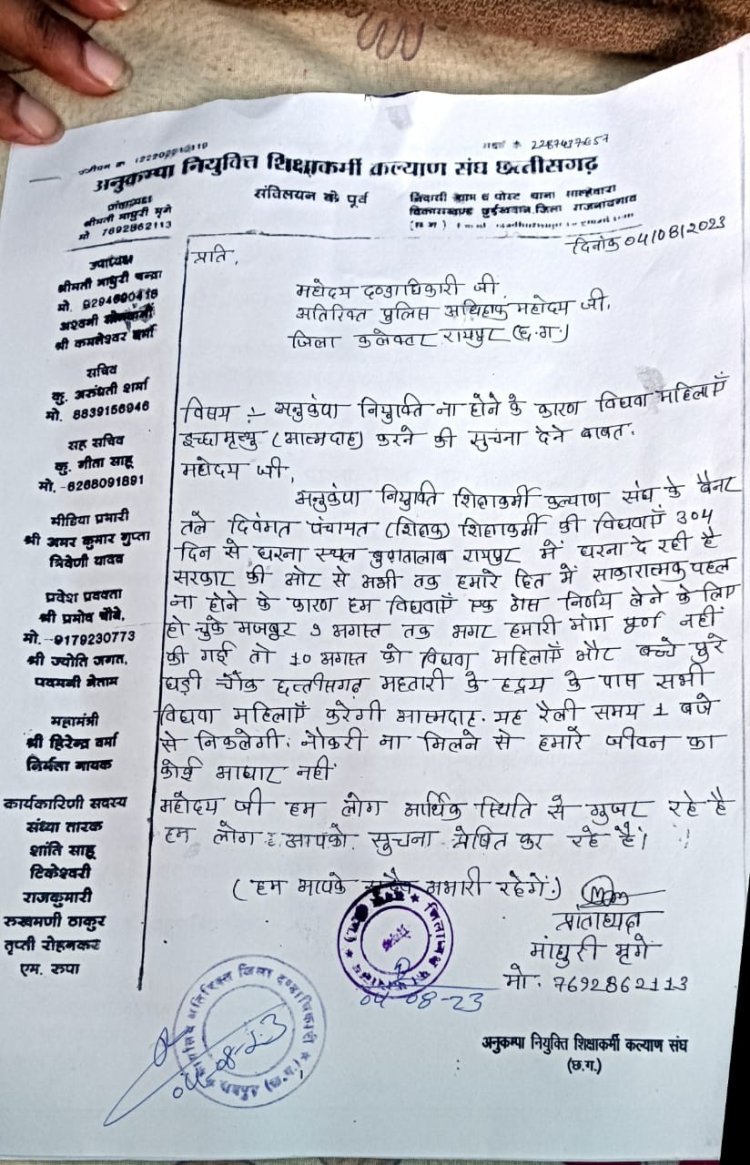 पंजीयन क्र 122202210119
अनुकम्पा नियुक्ति शिक्षाकर्मी कल्याण संघ छत्तीसगढ़
संविलियन के पूर्व
निवासी ग्राम व पोस्ट थाना साल्हेवारा
विकासखण्ड छुईखदान जिला राजनांदगांव
प्रांताध्यक्ष
श्रीमती माधुरी मृगे
मो 7692862113
दिनांक 04/08/2023
उपाध्यक्ष
श्रीमती माधुरी चन्द्रा
मो. 9294690416
अश्वनी सोनवानी
श्री कमलेश्वर वर्मा
सचिव
कु. अरुंधती शर्मा
मो. 8839156946
सह सचिव
कु. गीता साहू
मो.-6268091891
मीडिया प्रभारी
श्री अमर कुमार गुप्ता
त्रिवेणी यादव
प्रदेश प्रवक्ता
श्री प्रमोद चौबे,
मो.-9179230773
श्री ज्योति जगत,
पदमनी नेताम
महामंत्री
श्री हिरेन्द्र वर्मा
निर्मला नायक
कार्यकारिणी सदस्य
संध्या तारक
शांति साहू
टिकेश्वरी
राजकुमारी
रुखमणी ठाकुर
तृप्ती रोहनकर
एम. रुपा
प्रति,
महोदय दण्डाधिकारी जी
अतिरिक्त पुलिस अधिक्षक महोदय जी,
जिला कलेक्टर रायपुर (छ.ग.)
विषय :- अनुकंपा नियुक्ति ना होने के कारण विधवा महिलाएँ
इच्छा मृत्यु (आत्मदाह) करने की सुचना देने बाबत.
महोदय जी,
अनुकंपा नियुक्ति शिक्षाकर्मी कल्याण संघ के बैनर
तले दिवंगत पंचायत (शिक्षक) शिक्षाकर्मी की विधवाएँ 304
दिन से धरना स्थल बुढातालाब रायपुर में धरना दे रही है
सरकार की ओर से अभी तक हमारे हित में साकारात्मक पहल
ना होने के कारण हम विधवाएँ एक ठोस निर्णय लेने के लिए
हो चुके मजबूर 9 अगस्त तक अगर हमारी मांग पूर्ण नहीं
की गई तो 10 अगस्त को विधवा महिलाएँ और बच्चे पुरे
घड़ी चौक छत्तीसगढ़ महतारी के हृदय के पास सभी
विधवा महिलाएँ करेगी आत्मदाह. यह रैली समय 1 बजे
से निकलेगी. नौकरी ना मिलने से हमारे जीवन का
कोई आधार नहीं
महोदय जी हम लोग आर्थिक स्थिति से गुजर रहे है
हम लोग आपको सुचना प्रेषित कर रहे है।
(हम आपके सदैव अभारी रहेगें.)
प्रांताध्यक्ष
माधुरी मृगे
मो. 7692862113
04-08-23
04-08-23
अनुकम्पा नियुक्ति शिक्षाकर्मी कल्याण संघ
(छ.ग.)